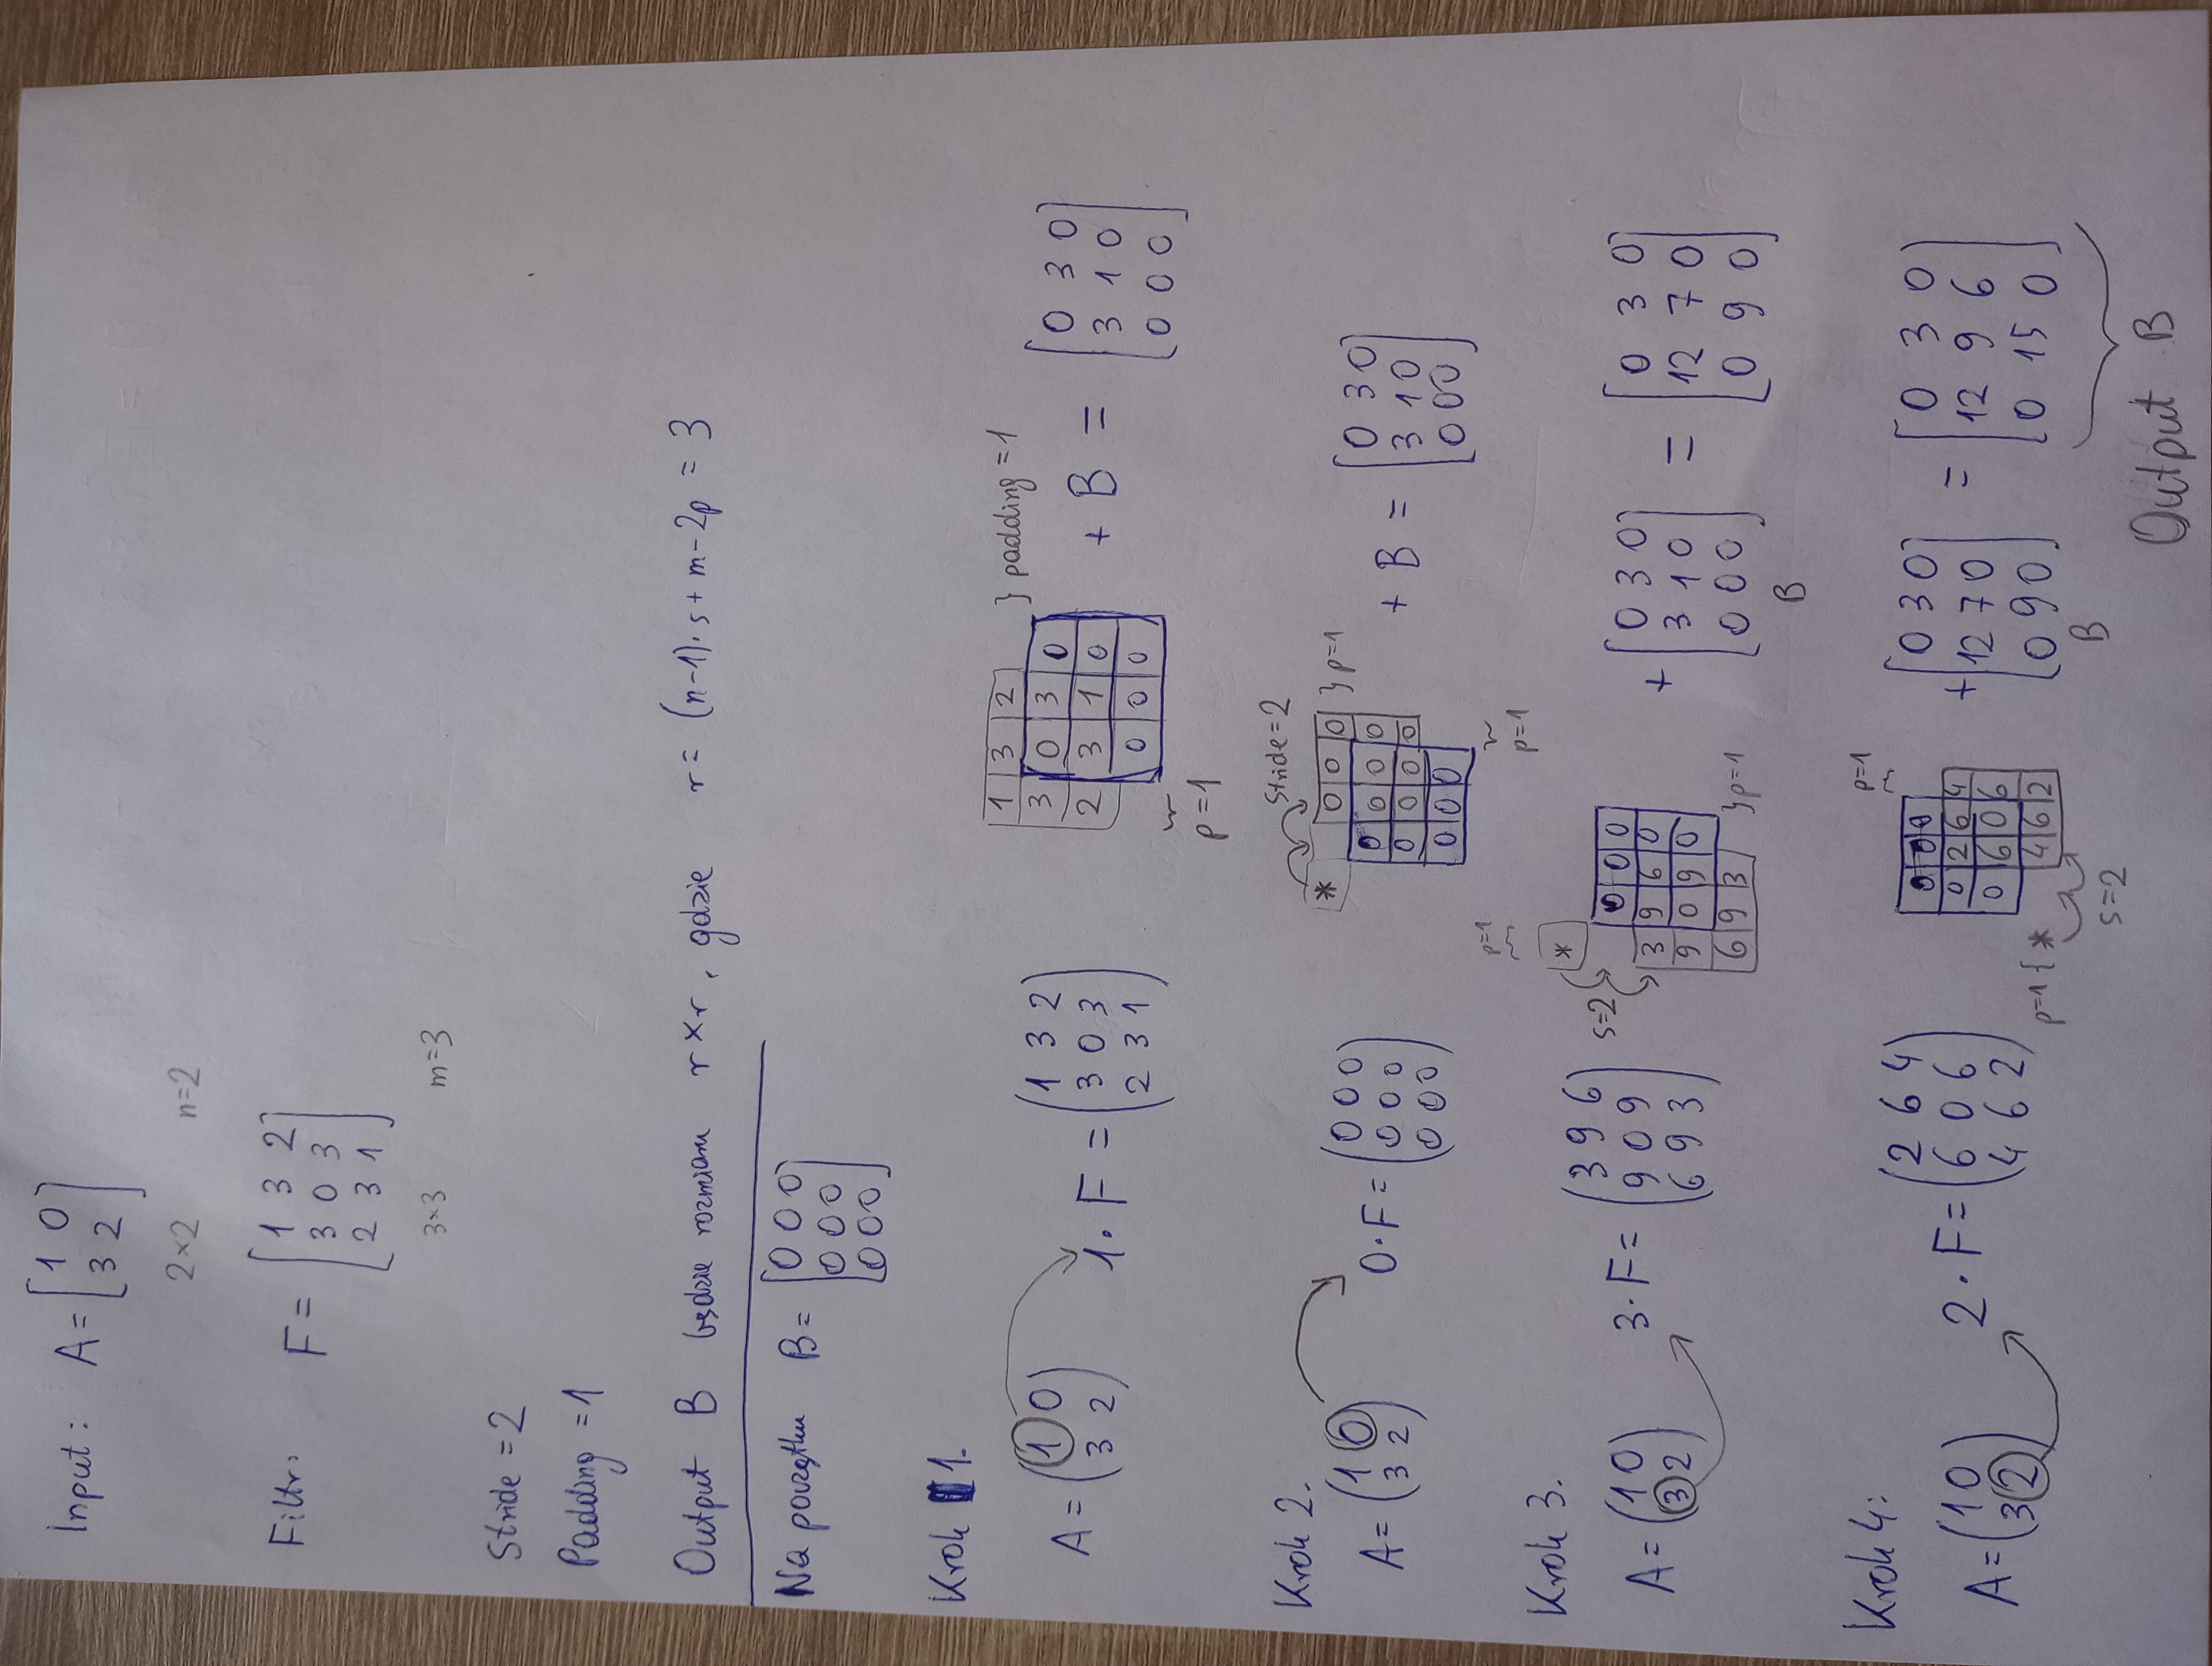 Input: A = [1 0
3 2]
2×2 n=2
Filtr: F = [1 3 2
3 0 3
2 3 1]
3×3 m=3
Stride = 2
Padding = 1
Output B będzie rozmiaru r×r, gdzie r = (n-1)·s + m - 2p = 3
Na początku B = [0 0 0
0 0 0
0 0 0]
Krok 1.
A = (1 0
3 2)
1·F = (1 3 2
3 0 3
2 3 1)
1 3 2 } padding = 1
3 0 3 0
2 3 1 0
0 0 0
p=1
+ B = [0 3 0
3 1 0
0 0 0]
Krok 2.
A = (1 0
3 2)
0·F = (0 0 0
0 0 0
0 0 0)
Stride = 2
* 0 0 0 } p=1
0 0 0 0
0 0 0 0
0 0 0
p=1
+ B = [0 3 0
3 1 0
0 0 0]
Krok 3.
A = (1 0
3 2)
3·F = (3 9 6
9 0 9
6 9 3)
p=1
*
s=2
0 0 0
3 9 6 0
9 0 9 0
6 9 3 } p=1
+ [0 3 0
3 1 0
0 0 0]
B
= [0 3 0
12 7 0
0 9 0]
Krok 4:
A = (1 0
3 2)
2·F = (2 6 4
6 0 6
4 6 2)
p=1
0 0 0
0 2 6 4
0 6 0 6
p=1 { * 4 6 2
s=2
+ [0 3 0
12 7 0
0 9 0]
B
= [0 3 0
12 9 6
0 15 0]
Output B